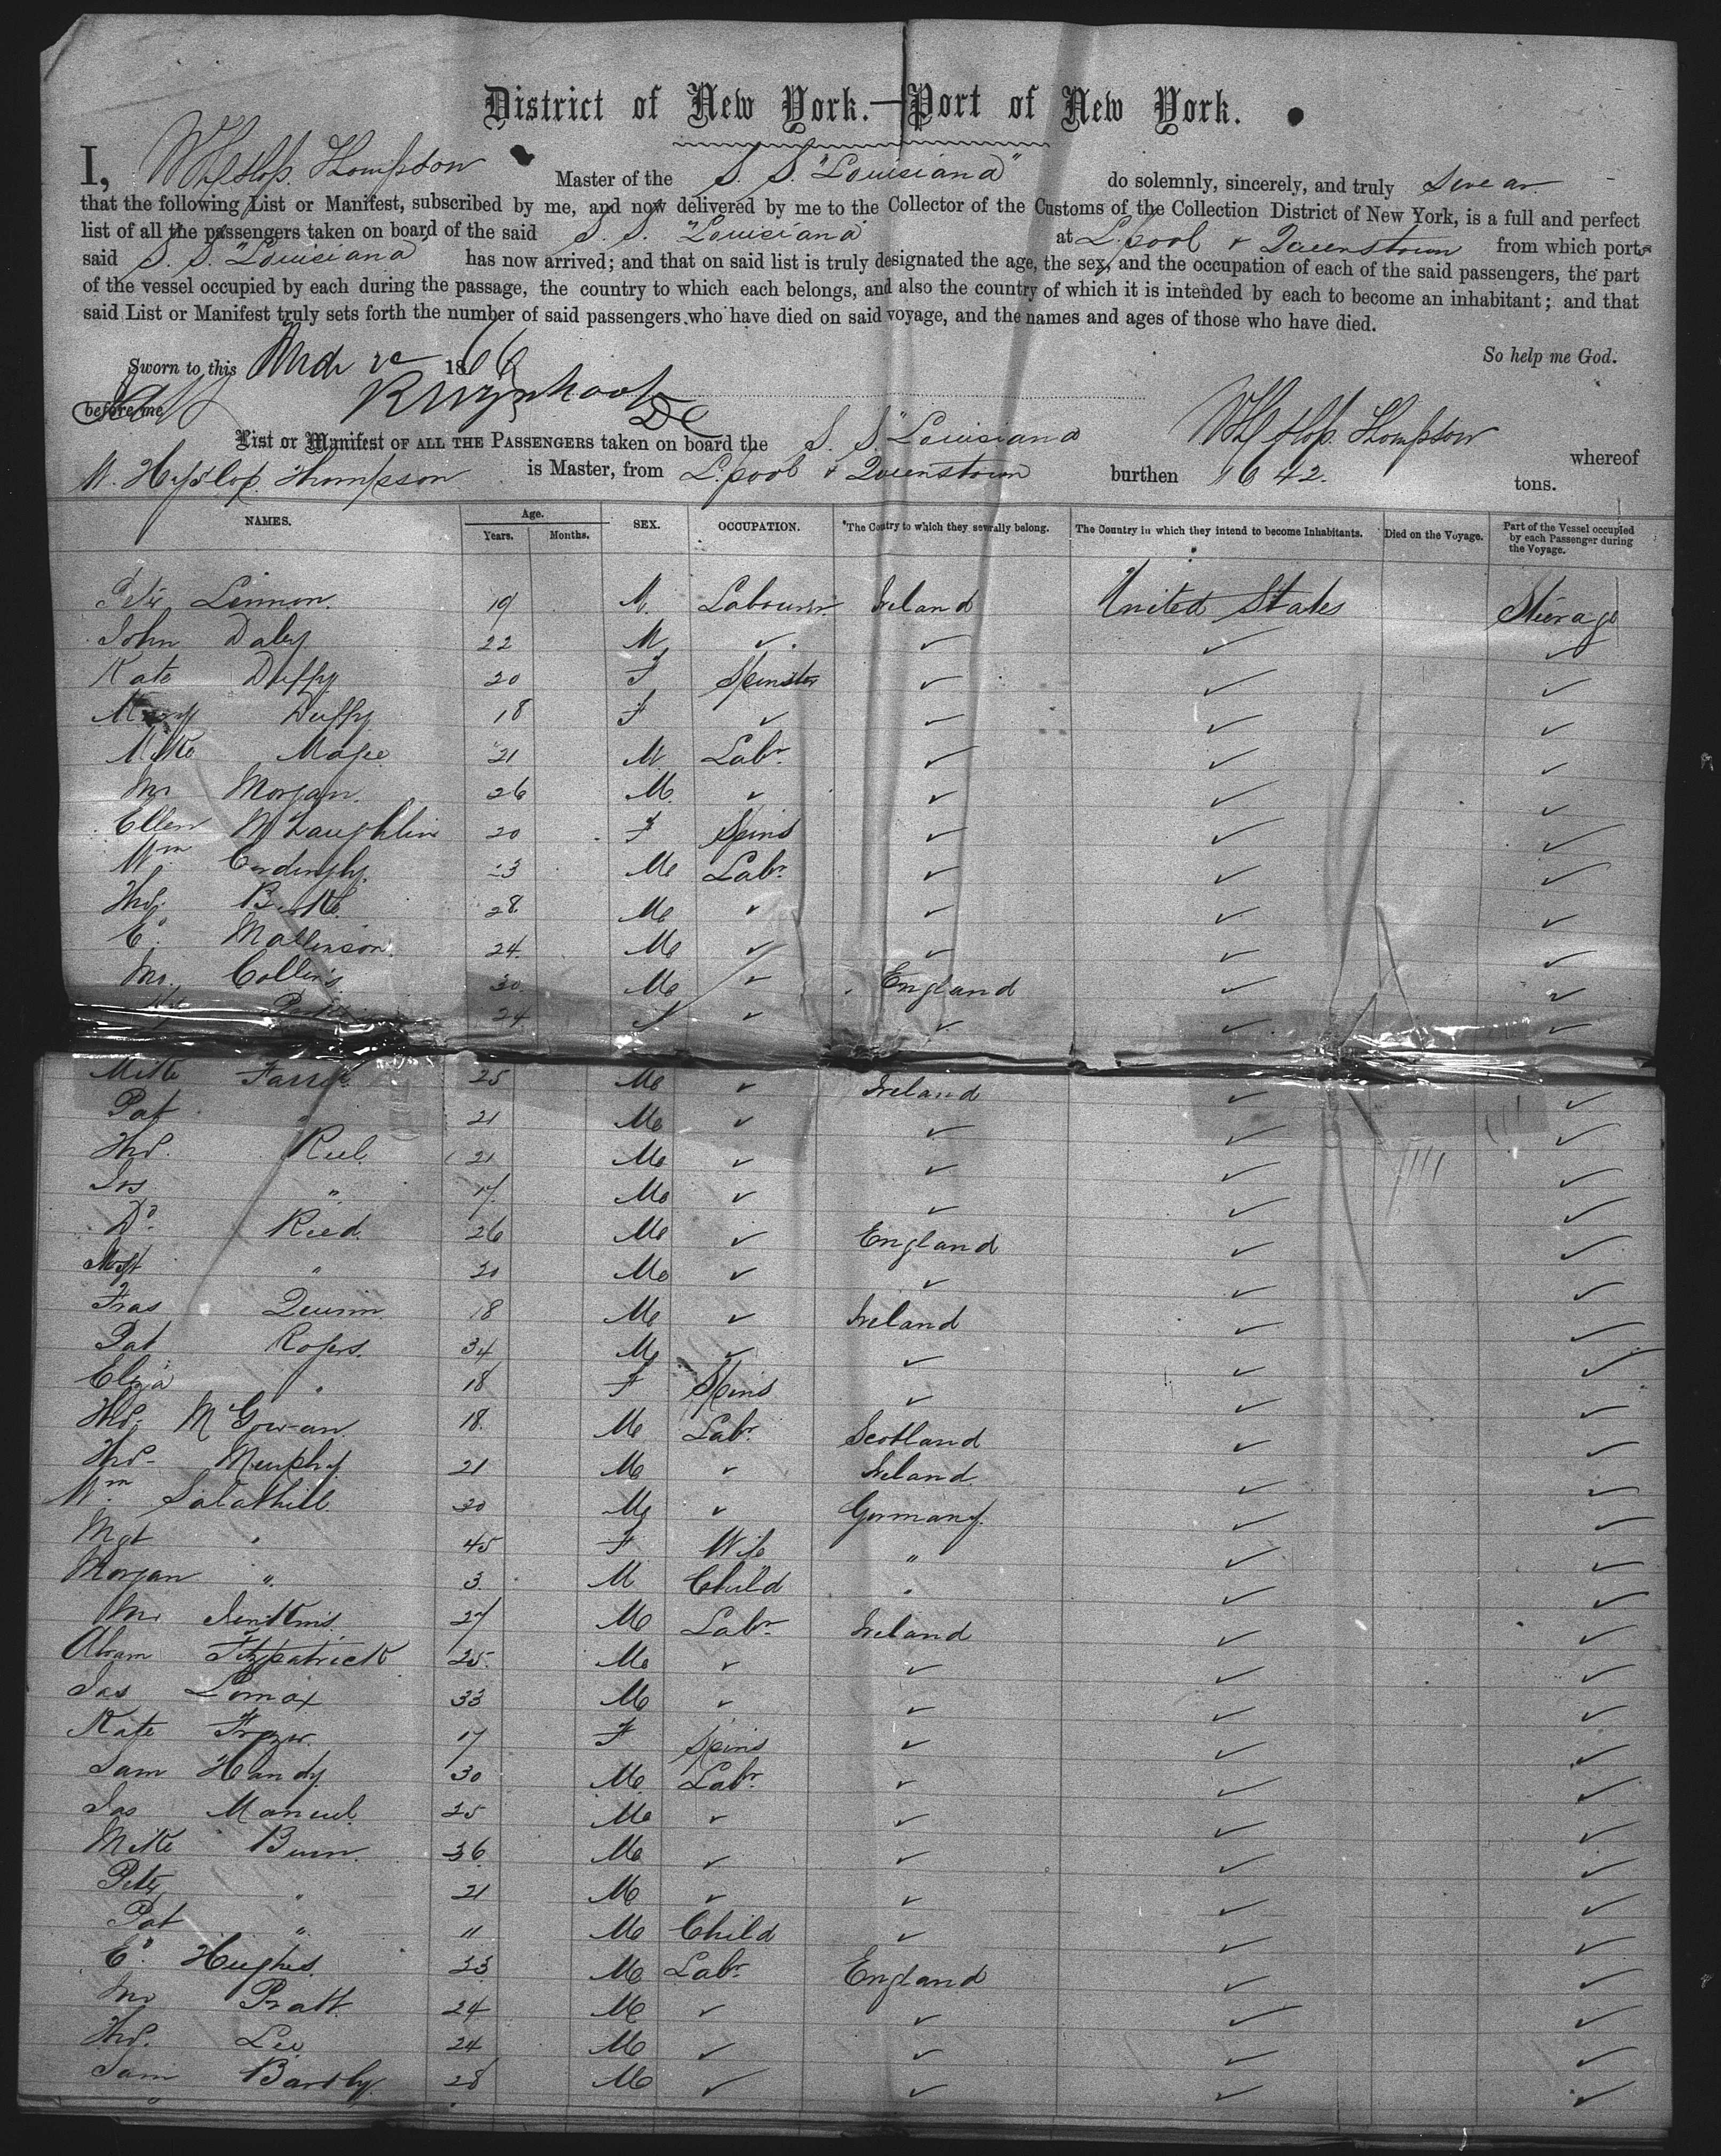 District of New York.—Port of New York.
I, W Hyslop. Thompson Master of the S. S. "Louisiana" do solemnly, sincerely, and truly swear
that the following List or Manifest, subscribed by me, and now delivered by me to the Collector of the Customs of the Collection District of New York, is a full and perfect
list of all the passengers taken on board of the said S. S. "Louisiana" at L.pool & Queenstown from which ports
said S. S. "Louisiana" has now arrived; and that on said list is truly designated the age, the sex, and the occupation of each of the said passengers, the part
of the vessel occupied by each during the passage, the country to which each belongs, and also the country of which it is intended by each to become an inhabitant; and that
said List or Manifest truly sets forth the number of said passengers who have died on said voyage, and the names and ages of those who have died.
So help me God.
Sworn to this 1866
before me
W Hyslop. Thompson
List or Manifest OF ALL THE PASSENGERS taken on board the S. S. "Louisiana whereof
W. Hyslop. Thompson is Master, from L.pool & Queenstown burthen 1642. tons.
NAMES. Age. Years. Months. SEX. OCCUPATION. *The Contry to which they severally belong. The Country in which they intend to become Inhabitants. Died on the Voyage. Part of the Vessel occupied by each Passenger during the Voyage.
Peter Lennon. 19 M. Labourer Ireland United States Steerage
John Daly 22 M ✓ ✓ ✓ ✓
Kate Duffy 20 F Spinster ✓ ✓ ✓
Mary Duffy 18 F ✓ ✓ ✓ ✓
Mike Magee 21 M. Labr ✓ ✓ ✓
Morgan. 26 M. ✓ ✓ ✓ ✓
Ellen McLaughlin 20 F Spins ✓ ✓ ✓
Wm Cordingly. M Labr ✓ ✓ ✓
Thos. Burke 28 M ✓ ✓ ✓ ✓
Ed. Mallinson. 24. M ✓ ✓ ✓ ✓
Collins 30 M ✓ England ✓ ✓
24 ✓ ✓ ✓ ✓
Mike 25 M ✓ Ireland ✓ ✓
Pat " 21 M ✓ ✓ ✓ ✓
Thos. Reel. 21 M ✓ ✓ ✓ ✓
Jos " 17 M ✓ ✓ ✓ ✓
Dd. Reed. 26 M ✓ England ✓ ✓
" 20 M ✓ ✓ ✓ ✓
Fras Quinn 18 M ✓ Ireland ✓ ✓
Pat Rogers. 34 M ✓ ✓ ✓ ✓
Eliza " 18 F Spins ✓ ✓ ✓
Thos. McGowan. 18. M Labr. Scotland ✓ ✓
Thos. Murphy. 21 M ✓ Ireland ✓ ✓
Wm. Salathiel 20 M ✓ Germany. ✓ ✓
Mgt " 45 F Wife " ✓ ✓
Morgan " 3. M Child " ✓ ✓
Jenkins. 27 M Labr Ireland ✓ ✓
Abram Fitzpatrick 25. M ✓ ✓ ✓ ✓
Jas Lomax 33 M ✓ ✓ ✓ ✓
Kate Frazer. 17 F Spins ✓ ✓ ✓
Sam Handy. 30 M Labr. ✓ ✓ ✓
Jas Manuel. 25 M ✓ ✓ ✓ ✓
Mike Burn. 36. M ✓ ✓ ✓ ✓
Peter " 21 M ✓ ✓ ✓ ✓
Pat " 11 M Child ✓ ✓ ✓
Ed. Hughes. 33 M Labr. England ✓ ✓
Pratt. 24 M ✓ ✓ ✓ ✓
Thos. Lee 24 M ✓ ✓ ✓ ✓
Sam Bardly. 28 M ✓ ✓ ✓ ✓